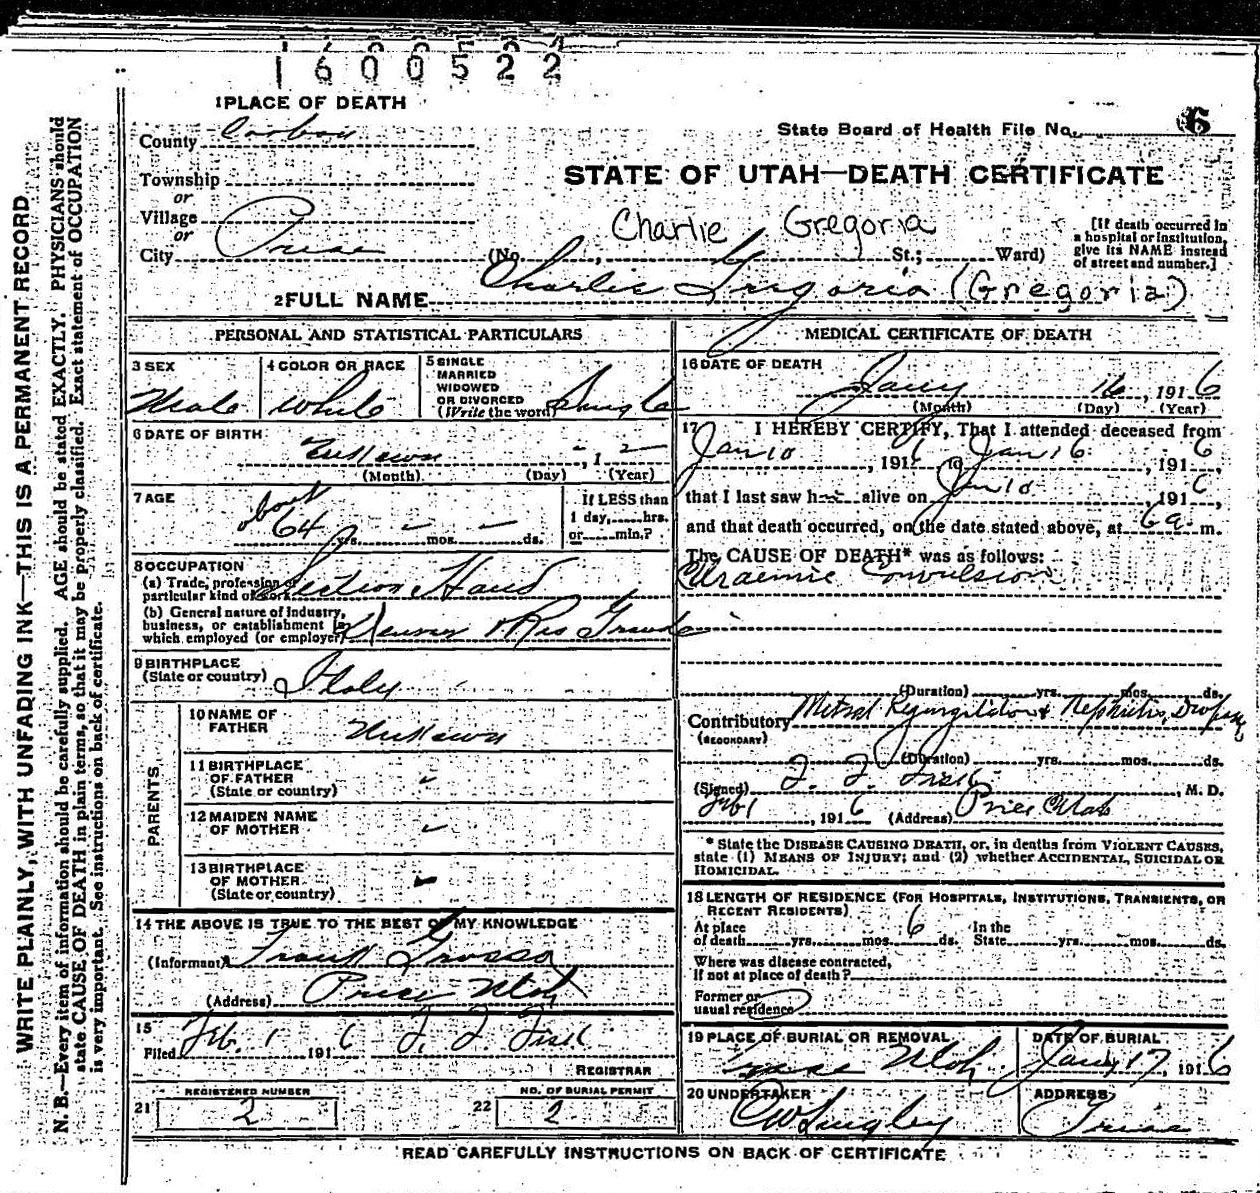 1600522
1 PLACE OF DEATH
County Carbon
State Board of Health File No. 6
Township
or
Village
or
City Price
STATE OF UTAH—DEATH CERTIFICATE
Charlie Gregoria
(No. , St.; Ward)
[If death occurred in a hospital or institution, give its NAME instead of street and number.]
2 FULL NAME Charlie Grigoria (Gregoria)
PERSONAL AND STATISTICAL PARTICULARS
3 SEX Male
4 COLOR OR RACE White
5 SINGLE MARRIED WIDOWED OR DIVORCED (Write the word) Single
6 DATE OF BIRTH
(Month) (Day) , 1 (Year)
7 AGE about 64 yrs. - mos. - ds.
If LESS than 1 day, hrs. or min.?
8 OCCUPATION
(a) Trade, profession or particular kind of work Section Hand
(b) General nature of Industry, business, or establishment in which employed (or employer) Denver & Rio Grande
9 BIRTHPLACE (State or country) Italy
PARENTS
10 NAME OF FATHER
11 BIRTHPLACE OF FATHER (State or country)
12 MAIDEN NAME OF MOTHER
13 BIRTHPLACE OF MOTHER (State or country)
14 THE ABOVE IS TRUE TO THE BEST OF MY KNOWLEDGE
(Informant) Frank Grosso
(Address) Price Utah
15
Filed Feb. 1 191 6 F. F. Fisk
REGISTRAR
21 REGISTERED NUMBER 2
22 NO. OF BURIAL PERMIT 2
MEDICAL CERTIFICATE OF DEATH
16 DATE OF DEATH
Jany 16, 191 6
(Month) (Day) (Year)
17 I HEREBY CERTIFY, That I attended deceased from
Jan 10, 191 6 to Jan 16, 191 6
that I last saw h alive on Jan 10, 191 6
and that death occurred, on the date stated above, at 6 a m.
The CAUSE OF DEATH* was as follows:
Uraemic Convulsion
(Duration) yrs. mos. ds.
Contributory Mitral Regurgitation & Nephritis, Dropsy
(SECONDARY)
(Duration) yrs. mos. ds.
(Signed) F. F. Fisk, M. D.
Feb 1, 191 6 (Address) Price Utah
* State the DISEASE CAUSING DEATH, or, in deaths from VIOLENT CAUSES, state (1) MEANS OF INJURY; and (2) whether ACCIDENTAL, SUICIDAL OR HOMICIDAL.
18 LENGTH OF RESIDENCE (FOR HOSPITALS, INSTITUTIONS, TRANSIENTS, OR RECENT RESIDENTS)
At place of death yrs. mos. 6 ds. In the State yrs. mos. ds.
Where was disease contracted, If not at place of death?
Former or usual residence
19 PLACE OF BURIAL OR REMOVAL Price Utah
DATE OF BURIAL Jany 17, 191 6
20 UNDERTAKER
ADDRESS Price
READ CAREFULLY INSTRUCTIONS ON BACK OF CERTIFICATE
WRITE PLAINLY, WITH UNFADING INK—THIS IS A PERMANENT RECORD
N. B.—Every item of information should be carefully supplied. AGE should be stated EXACTLY. PHYSICIANS should
state CAUSE OF DEATH in plain terms, so that it may be properly classified. Exact statement of OCCUPATION
is very important. See instructions on back of certificate.